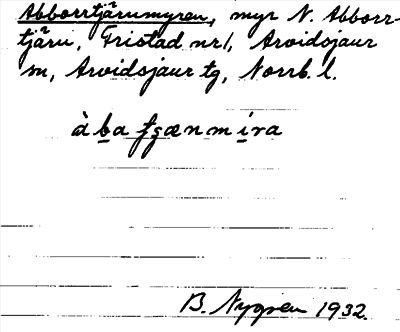 Abborrtjärumyren, myr N. Abborr-
tjäru, Fristad nr 1, Arvidsjaur
sn, Arvidsjaur tg, Norrb. l.
àba tʂænmira
B. Nygren 1932.